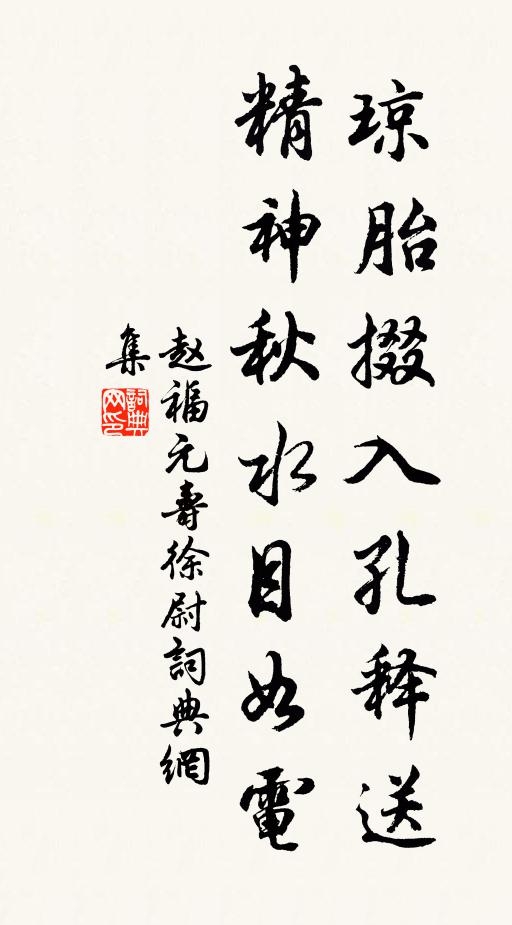 琼胎掇入孔释送
精神秋水目如電
赵福元壽徐尉詞典網
集
詞典网印